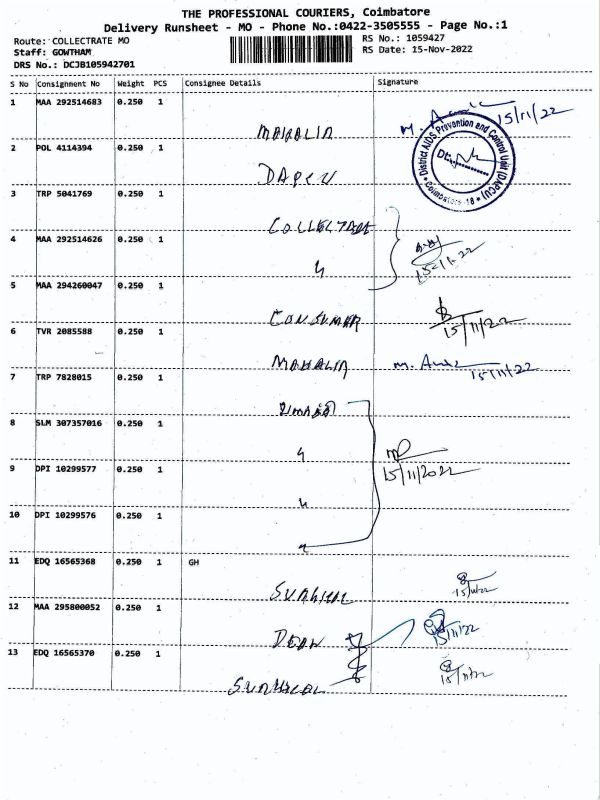 THE PROFESSIONAL COURIERS, Coimbatore
Delivery Runsheet - MO - Phone No.:0422-3505555 - Page No.:1
Route: COLLECTRATE MO
Staff: GOWTHAM
DRS No.: DCJB105942701
RS No.: 1059427
RS Date: 15-Nov-2022
S No Consignment No Weight PCS Consignee Details Signature
1 MAA 292514683 0.250 1
MAHALIR M. 15/11/22
2 POL 4114394 0.250 1
DAPCU
District AIDS Prevention and Control Unit (DAPCU)
Coimbatore-18
3 TRP 5041769 0.250 1
COLLECTRATE
4 MAA 292514626 0.250 1
15-11-22
5 MAA 294260047 0.250 1
CONSUMER 15/11/22
6 TVR 2085588 0.250 1
MAHALIR M. 15/11/22
7 TRP 7828015 0.250 1
8 SLM 307357016 0.250 1
15/11/2022
9 DPI 10299577 0.250 1
10 DPI 10299576 0.250 1
11 EDQ 16565368 0.250 1 GH
15/11/22
12 MAA 295800052 0.250 1
DEAN 15/11/22
13 EDQ 16565370 0.250 1
15/11/22